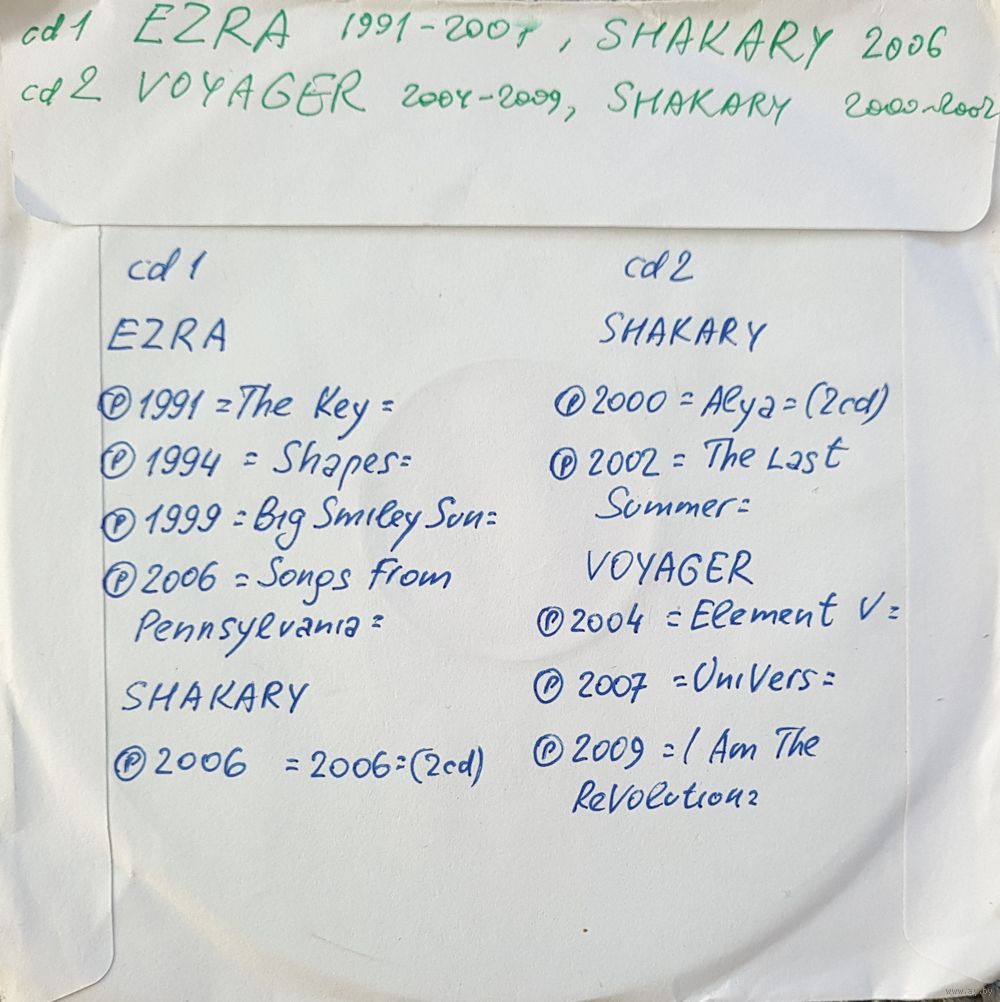 cd 1 EZRA 1991-200, SHAKARY 2006
cd 2 VOYAGER 2004-2009, SHAKARY 2000-2002
cd 1
EZRA
Ⓟ 1991 =The Key=
Ⓟ 1994 = Shapes=
Ⓟ 1999 =Big Smiley Sun=
Ⓟ 2006 =Songs From
Pennsylvania=
SHAKARY
Ⓟ 2006 =2006=(2cd)
cd 2
SHAKARY
Ⓟ 2000 =Alya=(2cd)
Ⓟ 2002 = The Last
Summer=
VOYAGER
Ⓟ 2004 =Element V=
Ⓟ 2007 =UniVers=
Ⓟ 2009 =I Am The
ReVolution=